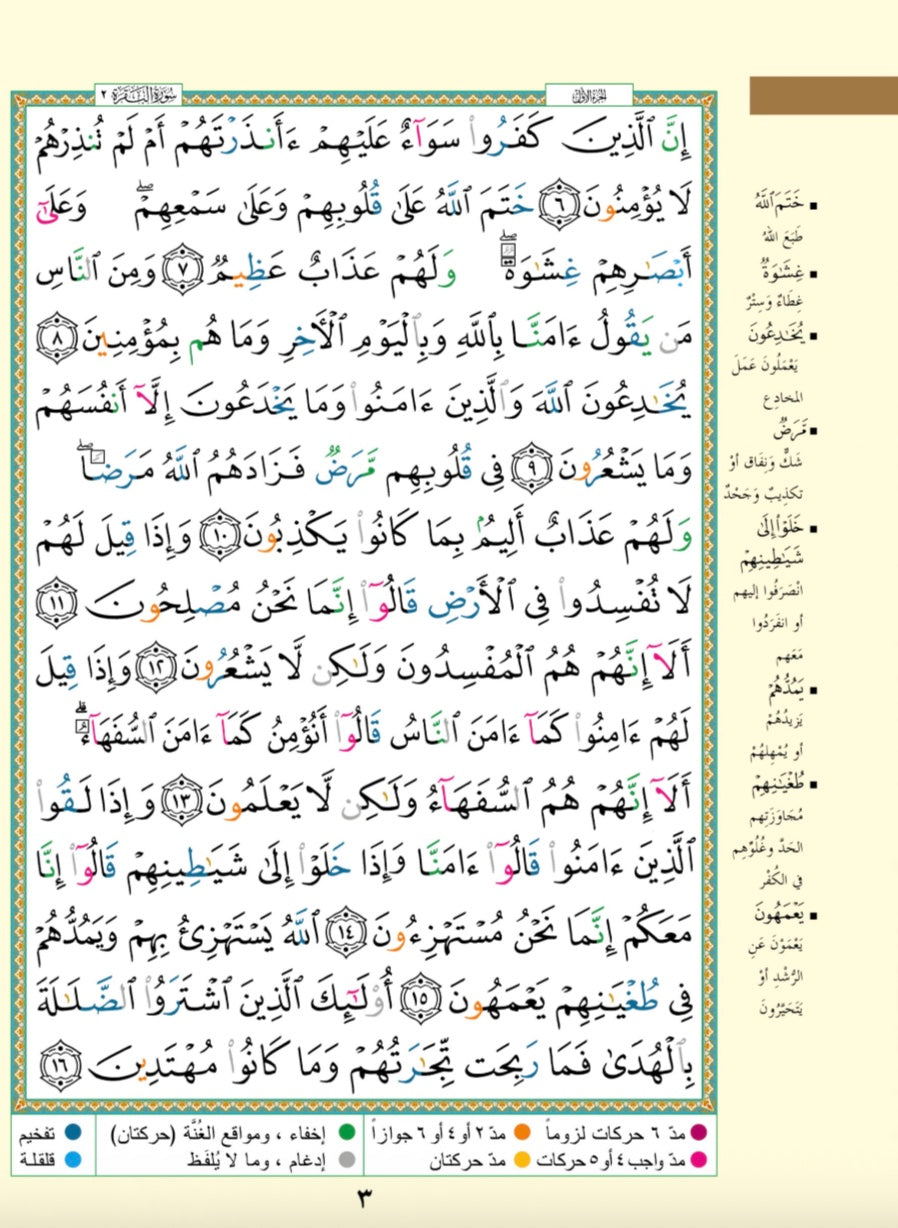 سُورَةُ البَقَرَة ٢
الجُزءُ الأوّلُ
إِنَّ ٱلَّذِينَ كَفَرُوا۟ سَوَآءٌ عَلَيْهِمْ ءَأَنذَرْتَهُمْ أَمْ لَمْ تُنذِرْهُمْ
لَا يُؤْمِنُونَ ﴿٦﴾ خَتَمَ ٱللَّهُ عَلَىٰ قُلُوبِهِمْ وَعَلَىٰ سَمْعِهِمْ ۖ وَعَلَىٰٓ
أَبْصَٰرِهِمْ غِشَٰوَةٌ ۖ وَلَهُمْ عَذَابٌ عَظِيمٌ ﴿٧﴾ وَمِنَ ٱلنَّاسِ
مَن يَقُولُ ءَامَنَّا بِٱللَّهِ وَبِٱلْيَوْمِ ٱلْأَخِرِ وَمَا هُم بِمُؤْمِنِينَ ﴿٨﴾
يُخَٰدِعُونَ ٱللَّهَ وَٱلَّذِينَ ءَامَنُوا۟ وَمَا يَخْدَعُونَ إِلَّآ أَنفُسَهُمْ
وَمَا يَشْعُرُونَ ﴿٩﴾ فِى قُلُوبِهِم مَّرَضٌ فَزَادَهُمُ ٱللَّهُ مَرَضًا ۖ
وَلَهُمْ عَذَابٌ أَلِيمٌۢ بِمَا كَانُوا۟ يَكْذِبُونَ ﴿١٠﴾ وَإِذَا قِيلَ لَهُمْ
لَا تُفْسِدُوا۟ فِى ٱلْأَرْضِ قَالُوٓا۟ إِنَّمَا نَحْنُ مُصْلِحُونَ ﴿١١﴾
أَلَآ إِنَّهُمْ هُمُ ٱلْمُفْسِدُونَ وَلَٰكِن لَّا يَشْعُرُونَ ﴿١٢﴾ وَإِذَا قِيلَ
لَهُمْ ءَامِنُوا۟ كَمَآ ءَامَنَ ٱلنَّاسُ قَالُوٓا۟ أَنُؤْمِنُ كَمَآ ءَامَنَ ٱلسُّفَهَآءُ ۗ
أَلَآ إِنَّهُمْ هُمُ ٱلسُّفَهَآءُ وَلَٰكِن لَّا يَعْلَمُونَ ﴿١٣﴾ وَإِذَا لَقُوا۟
ٱلَّذِينَ ءَامَنُوا۟ قَالُوٓا۟ ءَامَنَّا وَإِذَا خَلَوْا۟ إِلَىٰ شَيَٰطِينِهِمْ قَالُوٓا۟ إِنَّا
مَعَكُمْ إِنَّمَا نَحْنُ مُسْتَهْزِءُونَ ﴿١٤﴾ ٱللَّهُ يَسْتَهْزِئُ بِهِمْ وَيَمُدُّهُمْ
فِى طُغْيَٰنِهِمْ يَعْمَهُونَ ﴿١٥﴾ أُو۟لَٰٓئِكَ ٱلَّذِينَ ٱشْتَرَوُا۟ ٱلضَّلَٰلَةَ
بِٱلْهُدَىٰ فَمَا رَبِحَت تِّجَٰرَتُهُمْ وَمَا كَانُوا۟ مُهْتَدِينَ ﴿١٦﴾
▪ خَتَمَ ٱللَّهُ
طَبَعَ اللهُ
▪ غِشَٰوَةٌ
غِطَاءٌ وَسِتْرٌ
▪ يُخَٰدِعُونَ
يَعْمَلُونَ عَمَلَ
المخادِعِ
▪ مَّرَضٌ
شَكٌّ وَنِفَاق أوْ
تكذِيبٌ وَجَحْدٌ
▪ خَلَوْا۟ إِلَىٰ
شَيَٰطِينِهِمْ
انْصَرَفُوا إليهم
أو انفَرَدُوا
مَعَهم
▪ يَمُدُّهُمْ
يَزِيدُهُمْ
أو يُمْهِلهُمْ
▪ طُغْيَٰنِهِمْ
مُجَاوَزَتِهِم
الحَدَّ وغُلُوِّهِم
في الكُفْر
▪ يَعْمَهُونَ
يَعْمَوْنَ عَنِ
الرُّشْدِ أوْ
يَتَحَيَّرُونَ
مدّ ٦ حركات لزوماً
مدّ ٢ أو ٤ أو ٦ جوازاً
إخفاء ، ومواقع الغُنَّة (حركتان)
تفخيم
مدّ واجب ٤ أو ٥ حركات
مدّ حركتان
إدغام ، وما لا يُلفَظ
قلقلة
٣